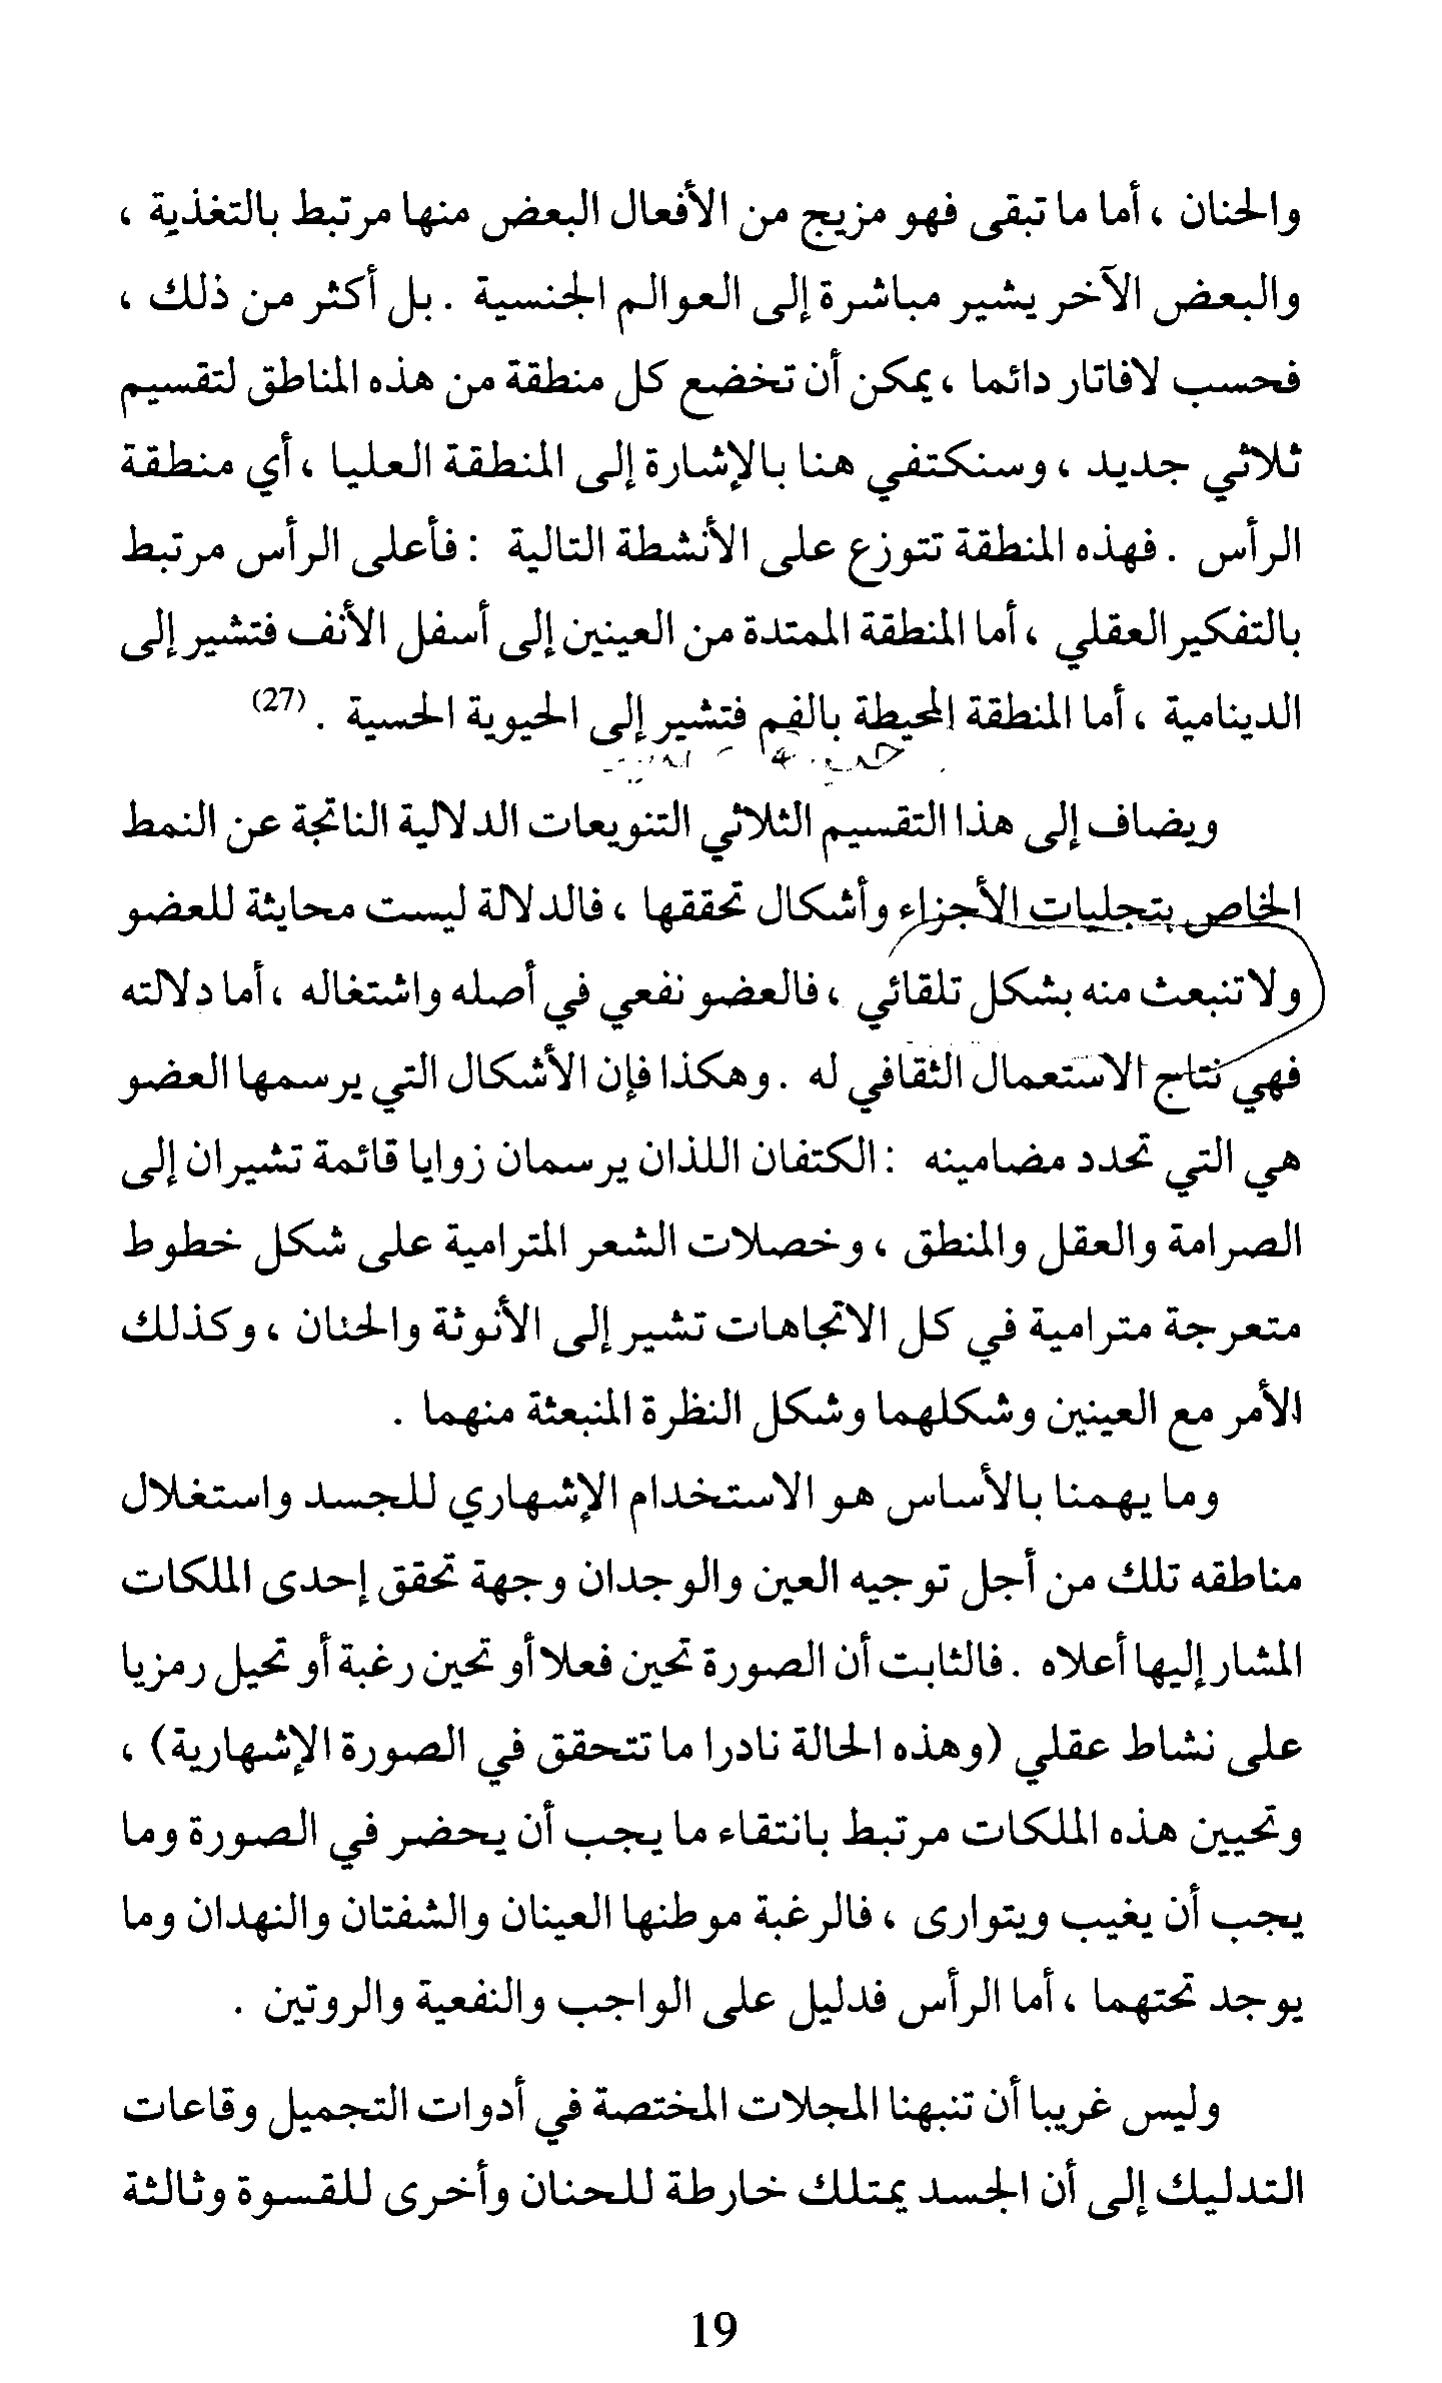 والحنان ، أما ما تبقى فهو مزيج من الأفعال البعض منها مرتبط بالتغذية ،
والبعض الآخر يشير مباشرة إلى العوالم الجنسية . بل أكثر من ذلك ،
فحسب لافاتار دائما ، يمكن أن تخضع كل منطقة من هذه المناطق لتقسيم
ثلاثي جديد ، وسنكتفي هنا بالإشارة إلى المنطقة العليا ، أي منطقة
الرأس . فهذه المنطقة تتوزع على الأنشطة التالية : فأعلى الرأس مرتبط
بالتفكير العقلي ، أما المنطقة الممتدة من العينين إلى أسفل الأنف فتشير إلى
الدينامية ، أما المنطقة المحيطة بالفم فتشير إلى الحيوية الحسية . (27)
ويضاف إلى هذا التقسيم الثلاثي التنويعات الدلالية الناتجة عن النمط
الخاص بتجليات الأجزاء وأشكال تحققها ، فالدلالة ليست محايثة للعضو
ولا تنبعث منه بشكل تلقائي ، فالعضو نفعي في أصله واشتغاله ، أما دلالته
فهي نتاج الاستعمال الثقافي له . وهكذا فإن الأشكال التي يرسمها العضو
هي التي تحدد مضامينه : الكتفان اللذان يرسمان زوايا قائمة تشيران إلى
الصرامة والعقل والمنطق ، وخصلات الشعر المترامية على شكل خطوط
متعرجة مترامية في كل الاتجاهات تشير إلى الأنوثة والحنان ، وكذلك
الأمر مع العينين وشكلهما وشكل النظرة المنبعثة منهما .
وما يهمنا بالأساس هو الاستخدام الإشهاري للجسد واستغلال
مناطقه تلك من أجل توجيه العين والوجدان وجهة تحقق إحدى الملكات
المشار إليها أعلاه . فالثابت أن الصورة تحين فعلا أو تحين رغبة أو تحيل رمزيا
على نشاط عقلي (وهذه الحالة نادرا ما تتحقق في الصورة الإشهارية) ،
وتحيين هذه الملكات مرتبط بانتقاء ما يجب أن يحضر في الصورة وما
يجب أن يغيب ويتوارى ، فالرغبة موطنها العينان والشفتان والنهدان وما
يوجد تحتهما ، أما الرأس فدليل على الواجب والنفعية والروتين .
وليس غريبا أن تنبهنا المجلات المختصة في أدوات التجميل وقاعات
التدليك إلى أن الجسد يمتلك خارطة للحنان وأخرى للقسوة وثالثة
19